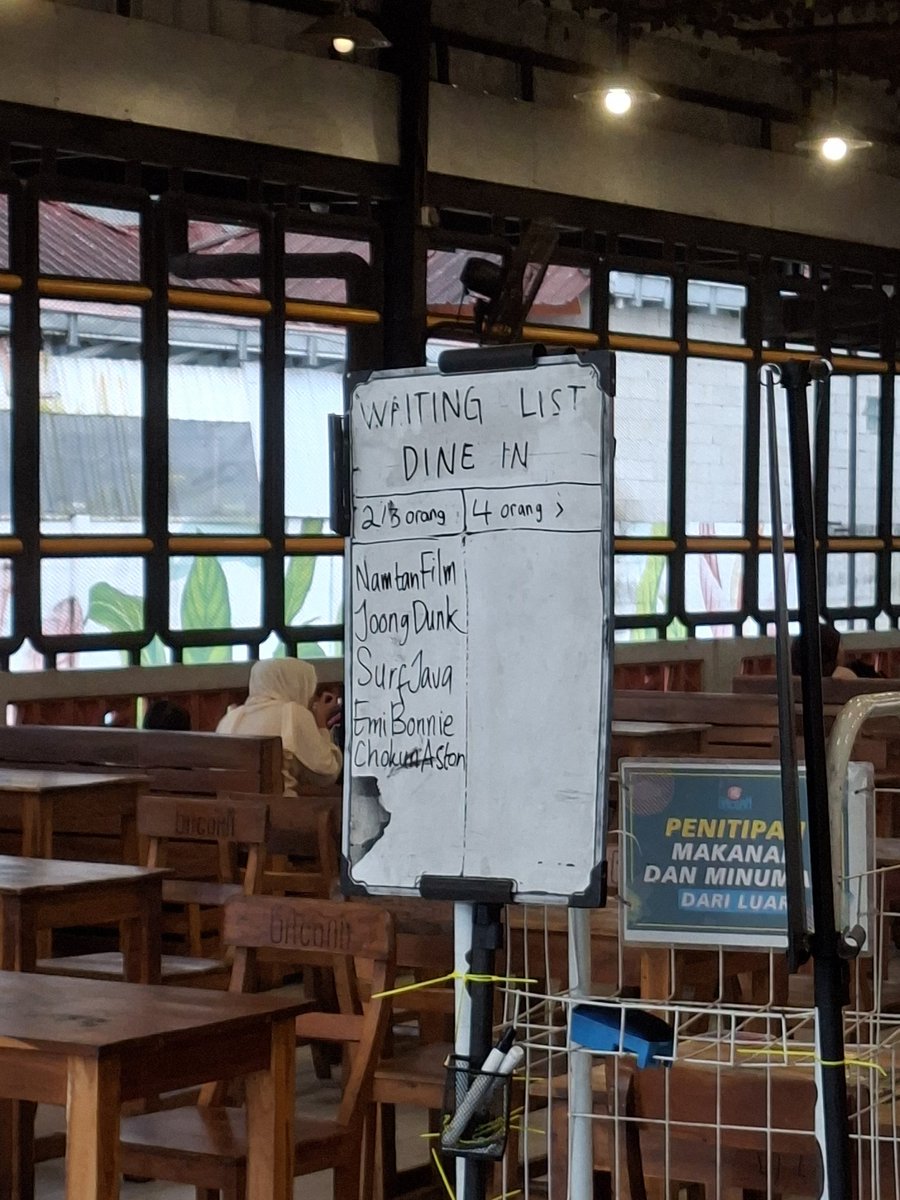 WAITING LIST
DINE IN
2/3 orang
4 orang >
NamtanFilm
JoongDunk
SurfJava
EmiBonnie
ChokunAston
PENITIPAN
MAKANAN
DAN MINUMA
DARI LUAR